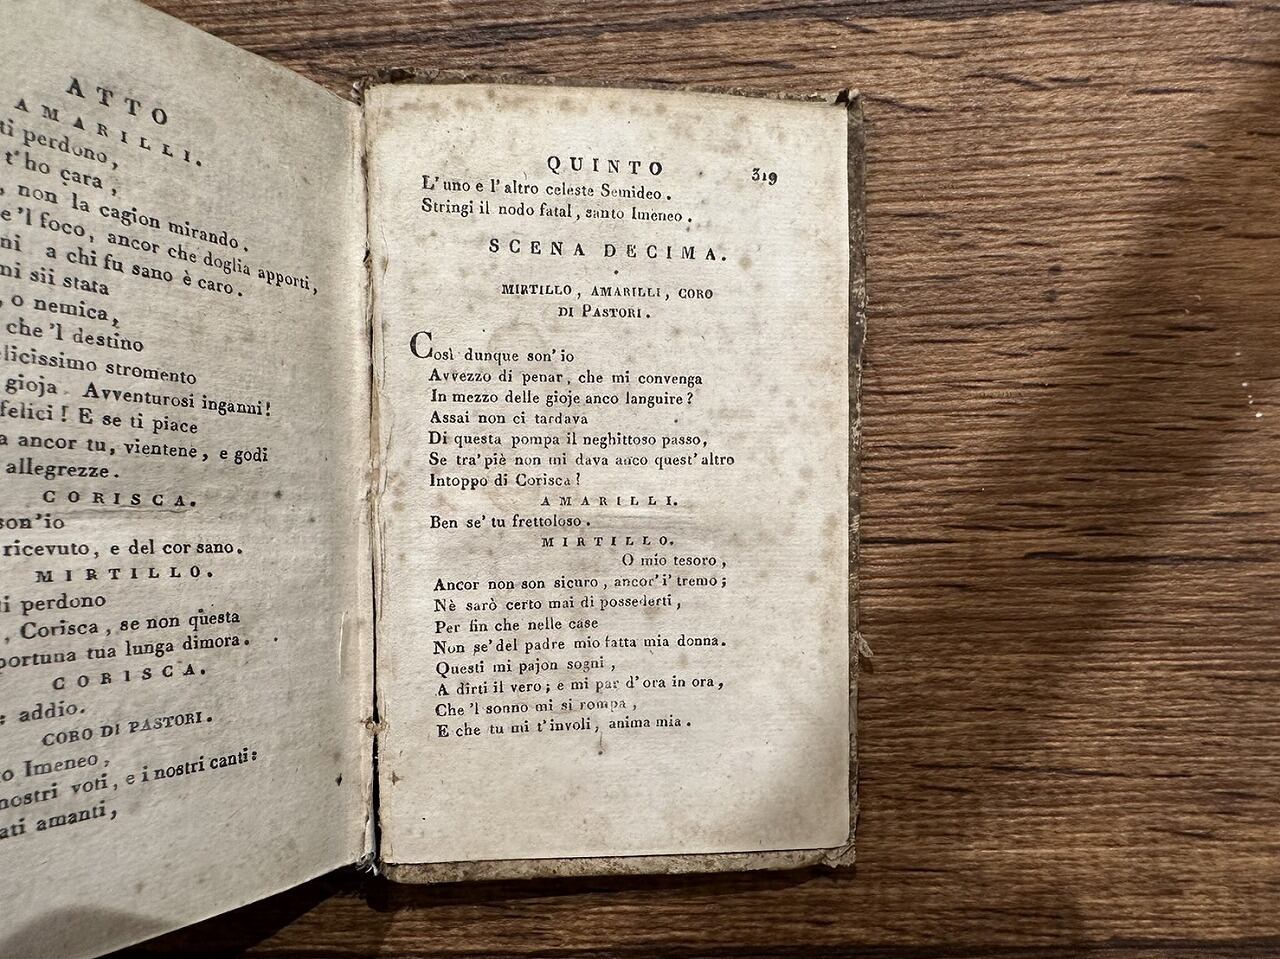 ATTO
AMARILLI.
ti perdono,
t'ho cara,
, non la cagion mirando.
e 'l foco, ancor che doglia apporti,
ni a chi fu sano è caro.
mi sii stata
, o nemica,
che 'l destino
licissimo stromento
gioja. Avventurosi inganni!
felici! E se ti piace
a ancor tu, vientene, e godi
allegrezze.
CORISCA.
son'io
ricevuto, e del cor sano.
MIRTILLO.
ti perdono
, Corisca, se non questa
portuna tua lunga dimora.
CORISCA.
: addio.
CORO DI PASTORI.
o Imeneo,
nostri voti, e i nostri canti:
ati amanti,
QUINTO 319
L'uno e l'altro celeste Semideo.
Stringi il nodo fatal, santo Imeneo.
SCENA DECIMA.
MIRTILLO, AMARILLI, CORO
DI PASTORI.
Così dunque son'io
Avvezzo di penar, che mi convenga
In mezzo delle gioje anco languire?
Assai non ci tardava
Di questa pompa il neghittoso passo,
Se tra'piè non mi dava anco quest'altro
Intoppo di Corisca?
AMARILLI.
Ben se' tu frettoloso.
MIRTILLO.
O mio tesoro,
Ancor non son sicuro, ancor'i' tremo;
Nè sarò certo mai di possederti,
Per fin che nelle case
Non se'del padre mio fatta mia donna.
Questi mi pajon sogni,
A dirti il vero; e mi par d'ora in ora,
Che 'l sonno mi si rompa,
E che tu mi t'involi, anima mia.